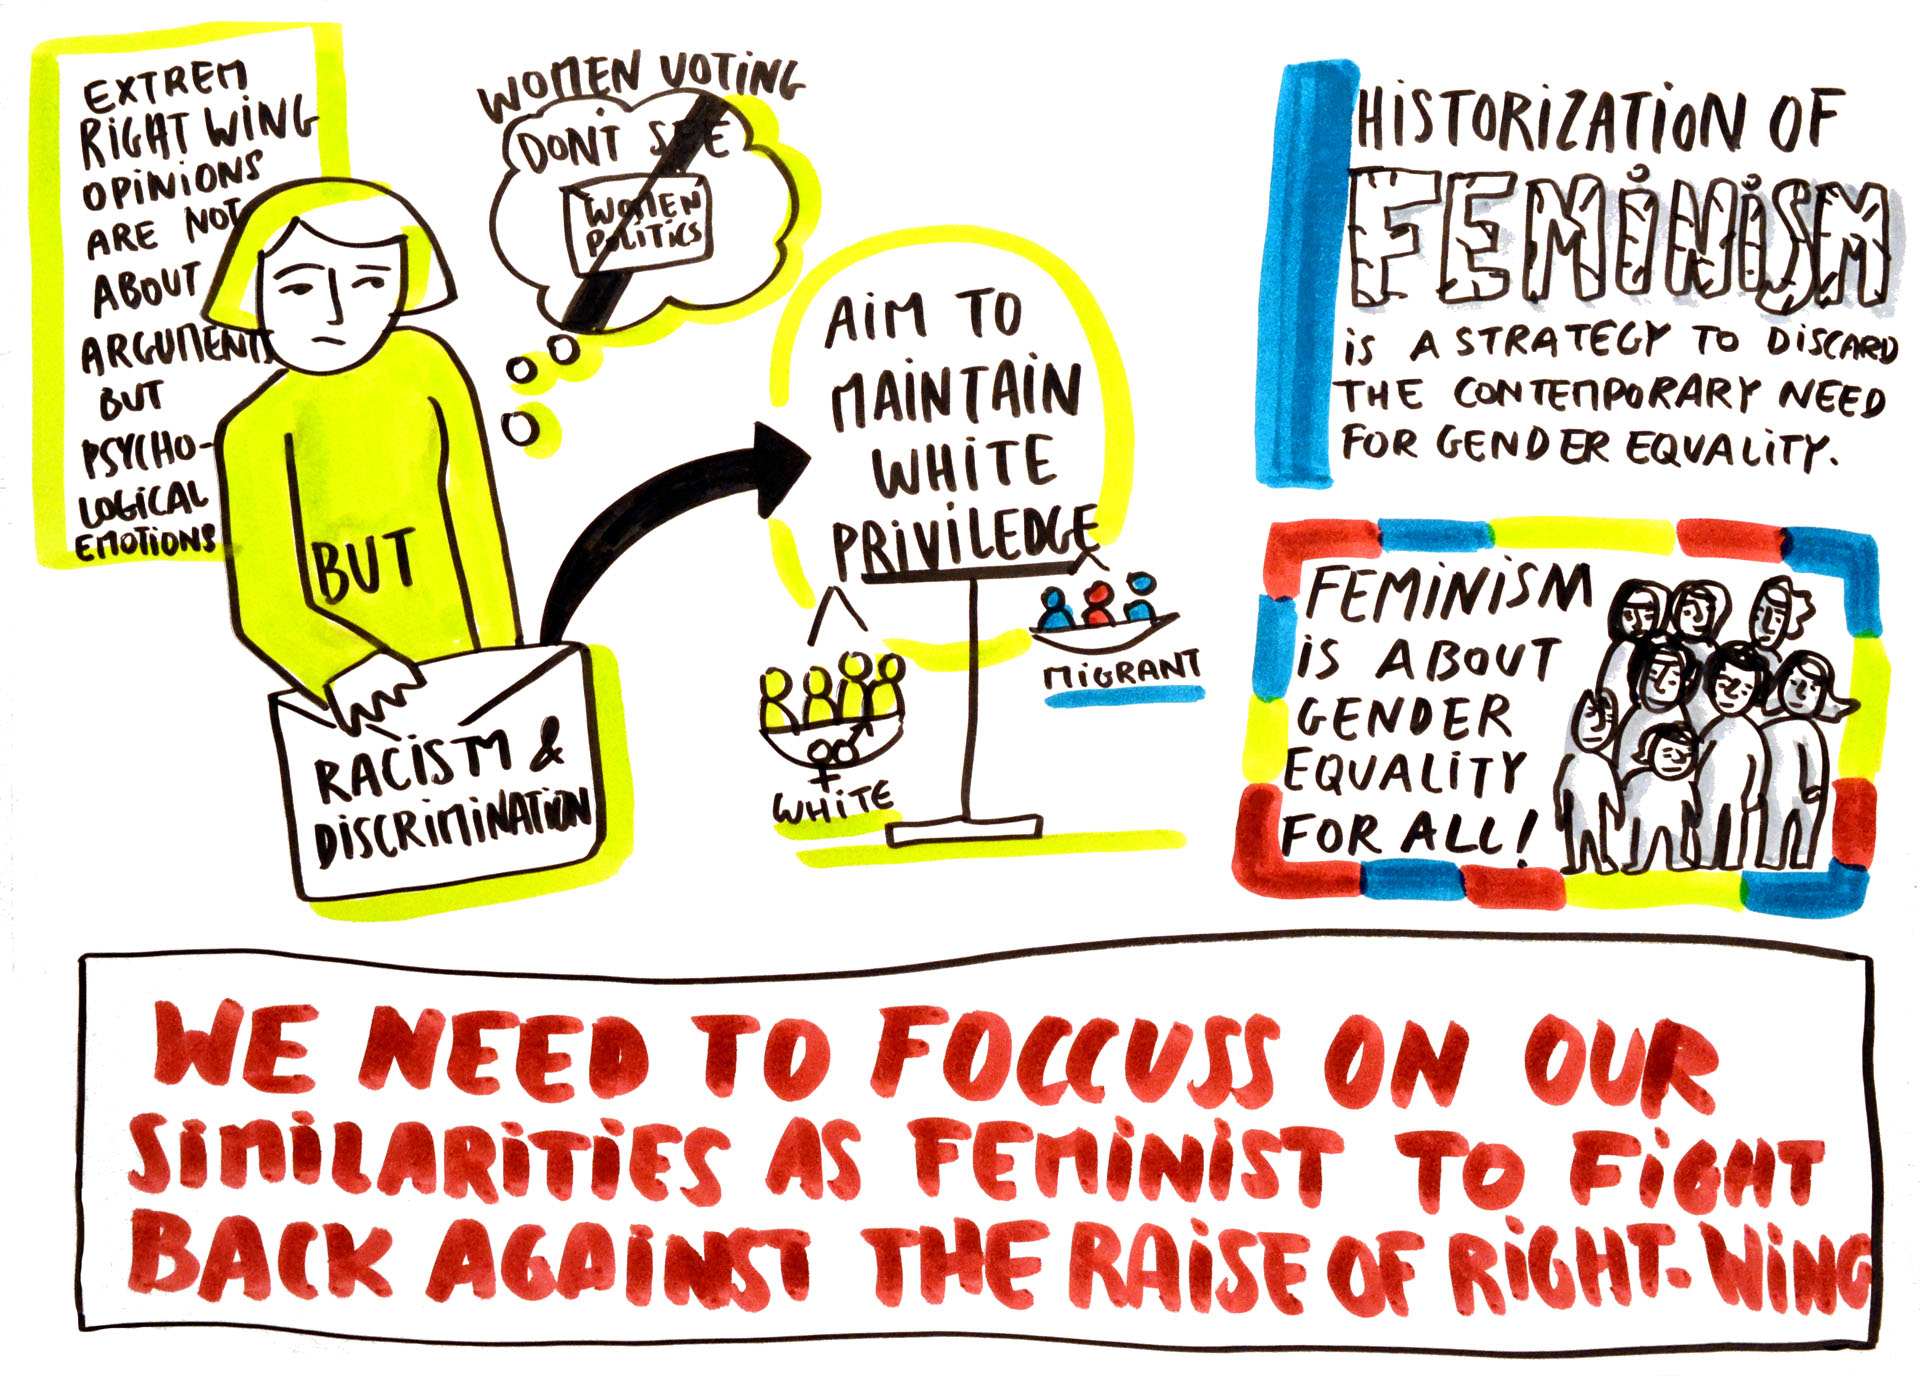 EXTREM
RIGHT WING
OPINIONS
ARE NOT
ABOUT
ARGUMENTS
BUT
PSYCHO-
LOGICAL
EMOTIONS
WOMEN VOTING
DON'T SEE
WOMEN
POLITICS
BUT
RACISM &
DISCRIMINATION
AIM TO
MAINTAIN
WHITE
PRIVILEDGE
WHITE
MIGRANT
HISTORIZATION OF
FEMINISM
IS A STRATEGY TO DISCARD
THE CONTEMPORARY NEED
FOR GENDER EQUALITY.
FEMINISM
IS ABOUT
GENDER
EQUALITY
FOR ALL!
WE NEED TO FOCCUSS ON OUR
SIMILARITIES AS FEMINIST TO FIGHT
BACK AGAINST THE RAISE OF RIGHT-WING